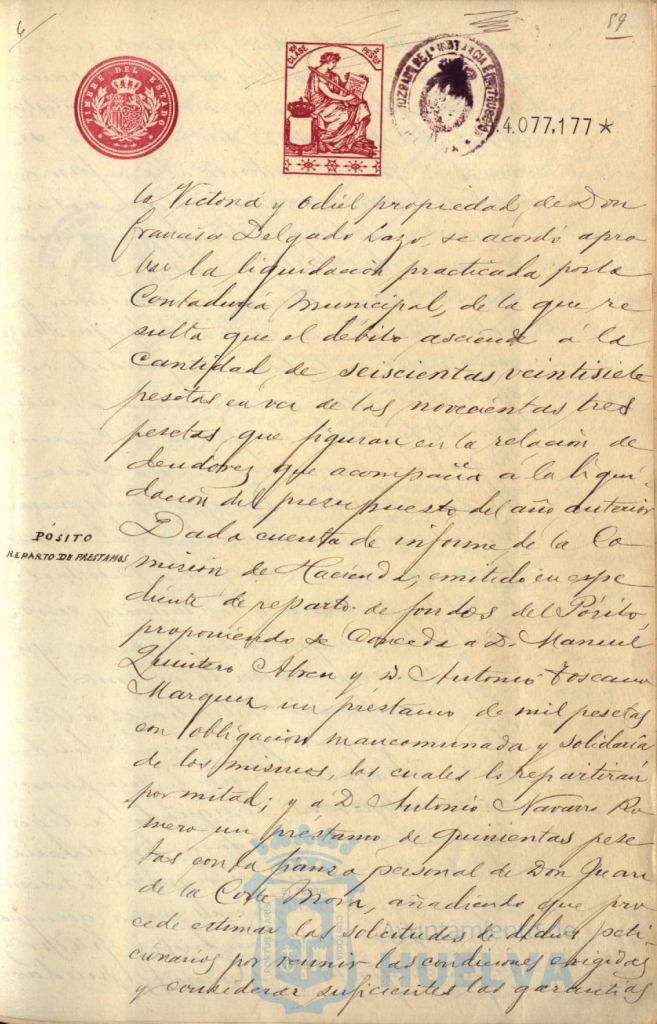 59
TIMBRE DEL ESTADO
10ª CLASE 5 PESETAS
JUZGADO DE 1ª INSTANCIA E INSTRUCCIÓN
4.077.177 *
la Victoria y Odiel propiedad de Don
Francisco Delgado Lazo, se acordó apro
bar la liquidación practicada por la
Contaduría Municipal, de la que re
sulta que el débito asciende á la
cantidad de seiscientas veintisiete
pesetas en vez de las novecientas tres
pesetas que figuran en la relación de
deudores que acompaña á la liqui-
dación del presupuesto del año anterior
PÓSITO
REPARTO DE PRESTAMOS
Dada cuenta de informe de la Co
misión de Hacienda, emitido en expe
diente de reparto de fondos del Pósito,
proponiendo se conceda á D. Manuel
Quintero Abreu y D. Antonio Toscano
Marquez, un préstamo de mil pesetas
con obligación mancomunada y solidaria
de los mismos, los cuales lo repartirán
por mitad; y á D. Antonio Navarro Ro
mero un préstamo de quinientas pese
tas con la fianza personal de Don Juan
de la Corte Mora, añadiendo que pro
cede estimar las solicitudes de dichos peti
cionarios por reunir las condiciones exigidas
y considerar suficientes las garantías
Ayuntamiento de
HUELVA